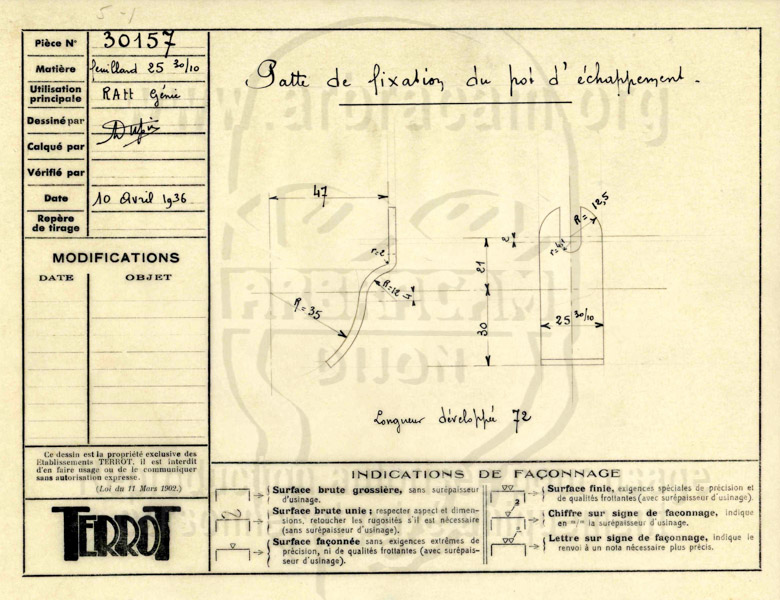 5-1
Pièce N° 30157
Matière feuillard 25 30/10
Utilisation principale RAtt Génie
Dessiné par
Calqué par
Vérifié par
Date 10 Avril 1936
Repère de tirage
MODIFICATIONS
DATE OBJET
Ce dessin est la propriété exclusive des
Etablissements TERROT. Il est interdit
d'en faire usage ou de le communiquer
sans autorisation expresse.
(Loi du 11 Mars 1902.)
TERROT
Patte de fixation du pot d'échappement.
47
r=2
R=12
R=35
21
30
2
R=12,5
25 30/10
Longueur développée 72
INDICATIONS DE FAÇONNAGE
Surface brute grossière, sans surépaisseur
d'usinage.
Surface brute unie ; respecter aspect et dimen-
sions, retoucher les rugosités s'il est nécessaire
(sans surépaisseur d'usinage).
Surface façonnée sans exigences extrêmes de
précision, ni de qualités frottantes (avec surépais-
seur d'usinage).
Surface finie, exigences spéciales de précision et
de qualités frottantes (avec surépaisseur d'usinage).
2
Chiffre sur signe de façonnage, indique
en m/m la surépaisseur d'usinage.
Lettre sur signe de façonnage, indique le
renvoi à un nota nécessaire plus précis.
www.arbracam.org
ARBRACAM
DIJON